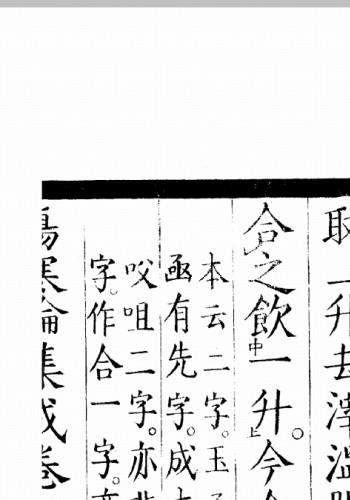 取一升去滓溫
合之飲中一升上。今
本云二字。玉
亟有先字。成
㕮咀二字。亦
字。作合一字。
傷寒論集成卷